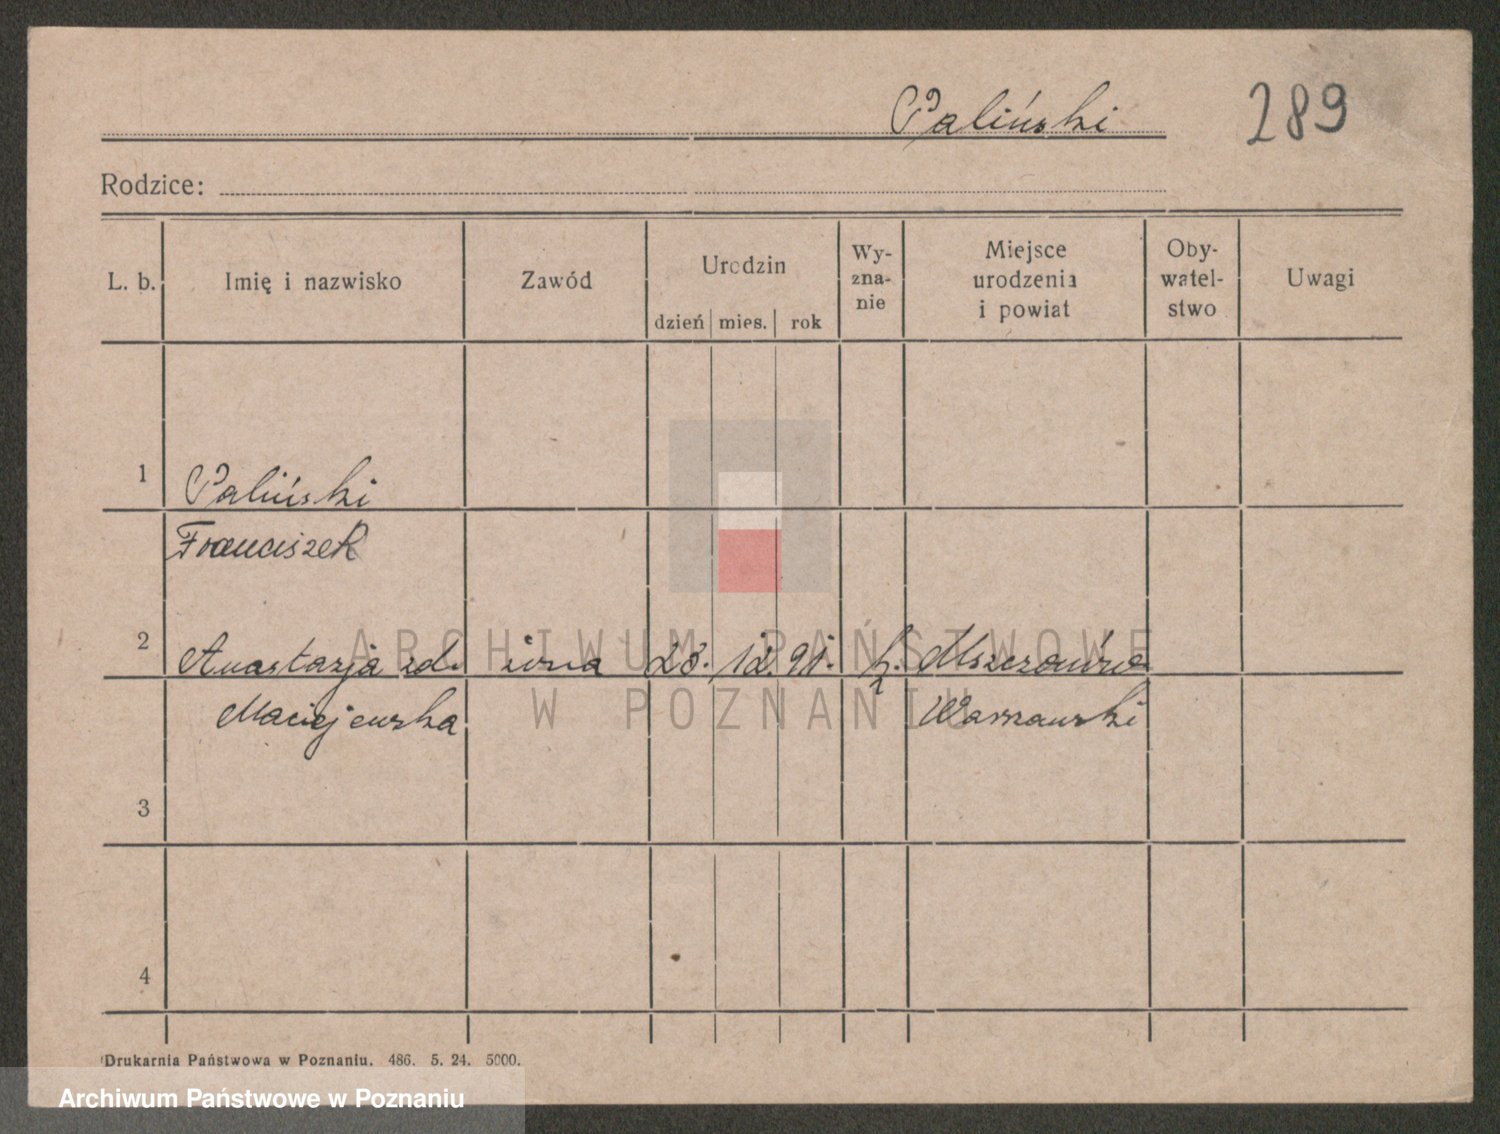 Paliński 289
Rodzice:
L. b. Imię i nazwisko Zawód Urodzin Wy-zna-nie Miejsce urodzenia i powiat Oby-watel-stwo Uwagi
dzień mies. rok
1 Paliński
Franciszek
2 Anastazja zd. żona 23. 12. 91. k. Mszczonów
Maciejewska Warszawski
3
4
ARCHIWUM PAŃSTWOWE
W POZNANIU
Drukarnia Państwowa w Poznaniu. 486. 5. 24. 5000.
Archiwum Państwowe w Poznaniu